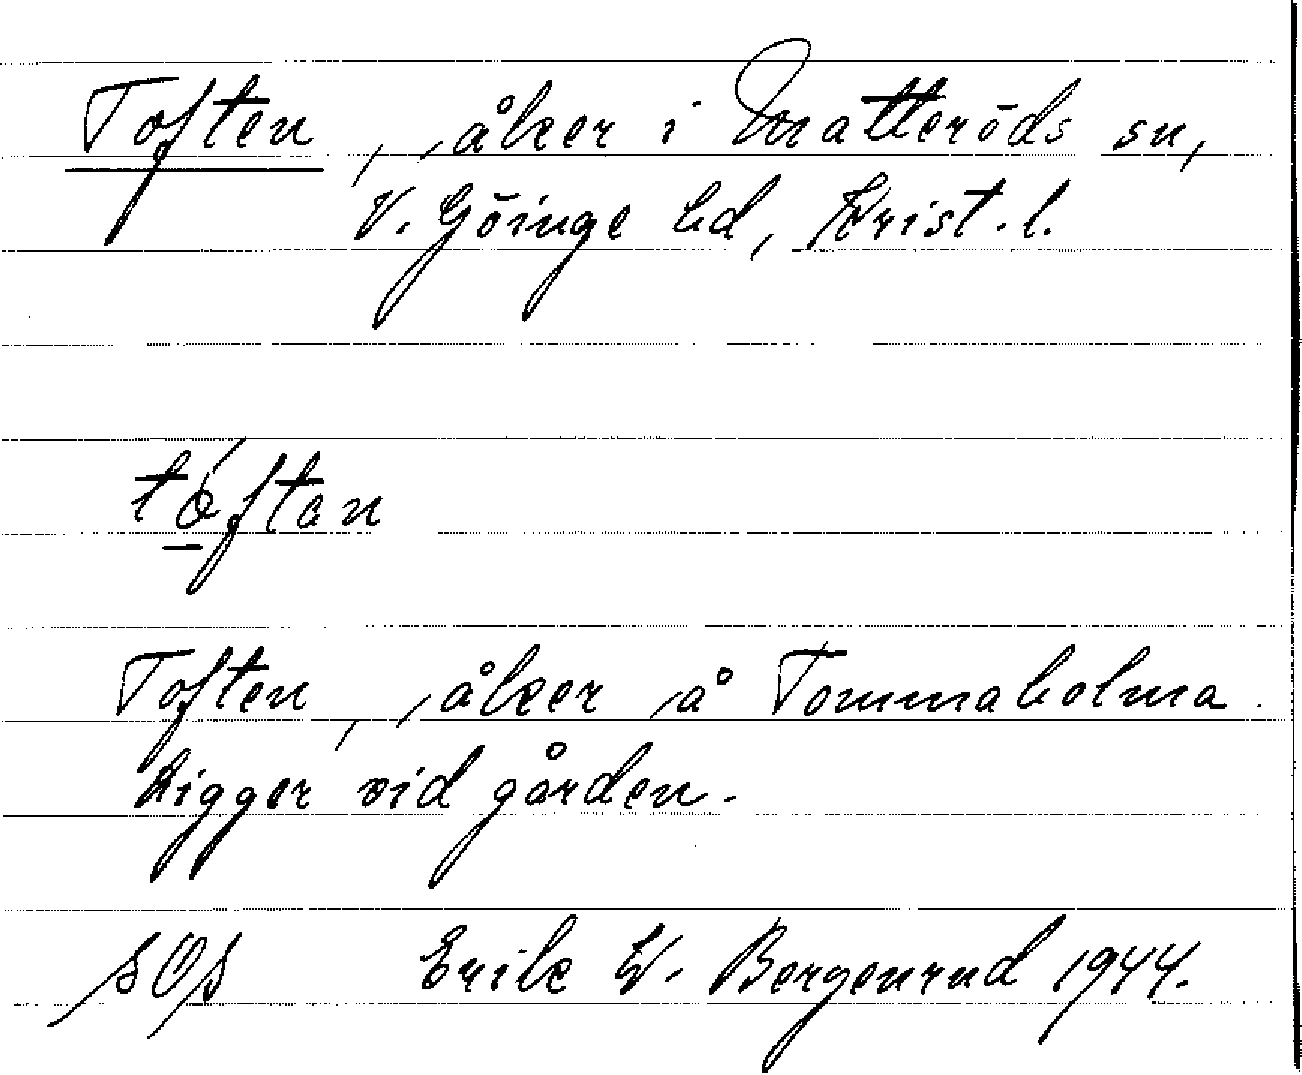 Toften, åker i Matteröds sn,
V. Göinge hd, Krist. l.
tóftan
Toften, åker å Tommaholma.
Ligger vid gården.
Erik W. Bergenrud 1944.